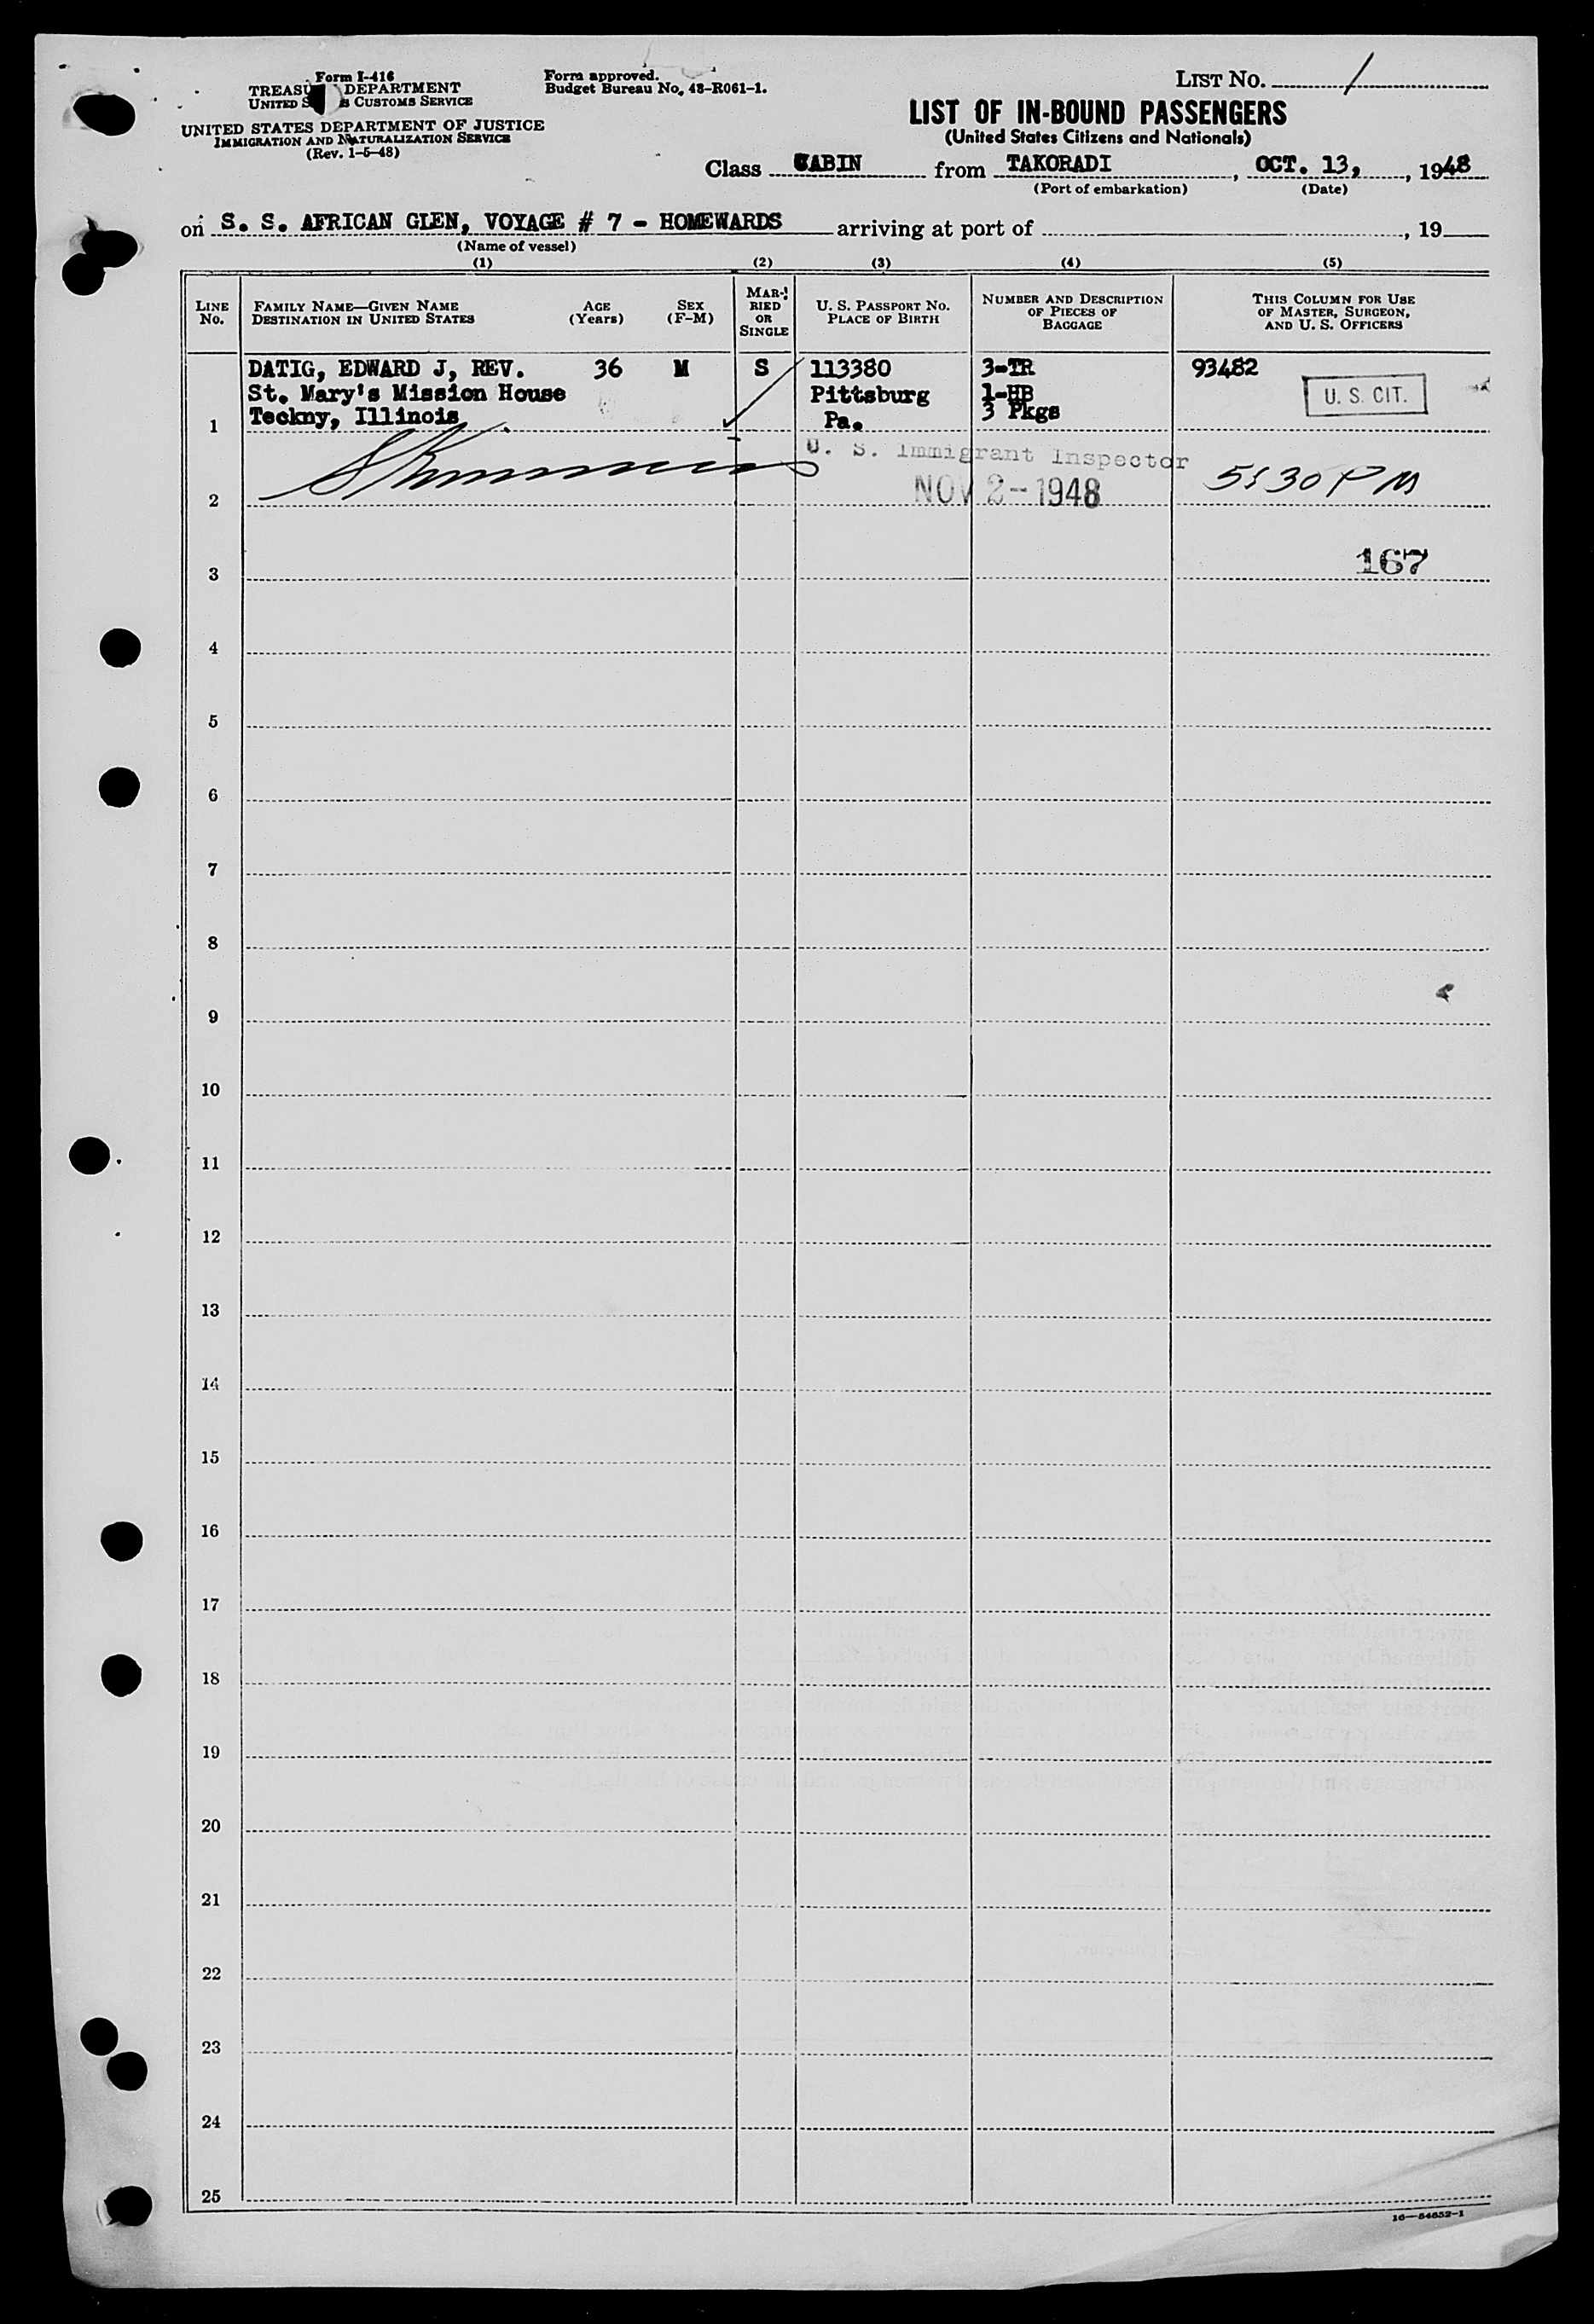 Form I-416
TREASU DEPARTMENT
UNITED S S CUSTOMS SERVICE
UNITED STATES DEPARTMENT OF JUSTICE
IMMIGRATION AND NATURALIZATION SERVICE
(Rev. 1-5-48)
Form approved.
Budget Bureau No. 43-R061-1.
LIST NO. 1
LIST OF IN-BOUND PASSENGERS
(United States Citizens and Nationals)
Class CABIN from TAKORADI, OCT. 13, 1948
(Port of embarkation) (Date)
on S. S. AFRICAN GLEN, VOYAGE # 7 - HOMEWARDS arriving at port of , 19
(Name of vessel)
(1) (2) (3) (4) (5)
LINE NO. FAMILY NAME—GIVEN NAME DESTINATION IN UNITED STATES AGE (Years) SEX (F-M) MAR-RIED OR SINGLE U. S. PASSPORT NO. PLACE OF BIRTH NUMBER AND DESCRIPTION OF PIECES OF BAGGAGE THIS COLUMN FOR USE OF MASTER, SURGEON, AND U. S. OFFICERS
DATIG, EDWARD J, REV. 36 M S 113380 3-TR 93482
St. Mary's Mission House Pittsburg 1-HB U. S. CIT.
1 Teckny, Illinois Pa. 3 Pkgs
U. S. Immigrant Inspector
2 NOV 2-1948 5:30 PM
3 167
4
5
6
7
8
9
10
11
12
13
14
15
16
17
18
19
20
21
22
23
24
25
16—54652-1